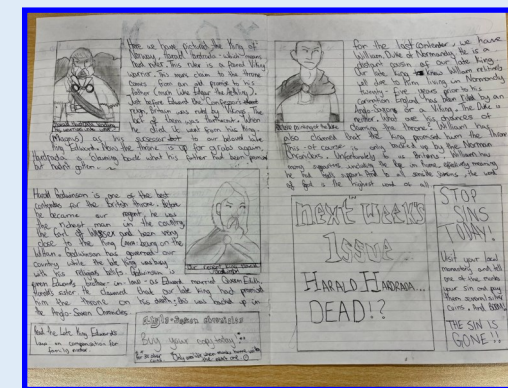 Here we have pictured the King of
Norway, Harald Hardrada - which means
hard ruler. This ruler is a feared Viking
warrior. This mere claim to the throne
comes from an old promise to his
father (much like Edgar the Aetheling).
Just before Edward the "Confessor's"
reign, Britain was ruled by Vikings. The
last of them was Harthacnut. When
he died it went from his King
Magnus) as his to our beloved late
King Edward. Now the throne is up for grabs again,
Hardrada is claiming back what his father had been promised
but hadn't gotten.
Harold Godwinson is one of the best
contenders for the british throne. Before
he became our regent, he was
the richest man in the country,
the Earl of Wessex and been very
close to the King
Britain. Godwinson has governed our
country while the late King was busy
with his religious beliefs. Godwinson is
Edwards brother-in-law as Edward married Queen Edith,
Harold's sister. It is claimed that the late king had promised
him the throne on his death; this was backed up in
the Anglo-Saxon Chronicles.
Read the late King Edward's
law on compensation for
family
Anglo-Saxon chronicles
Buy your copy today!
For the last contender, we have
William, Duke of Normandy. He is a
distant cousin of our late King.
Our late king knew William
well due to him living in Normandy
twenty-five years prior to his
coronation. England has been ruled by an
Anglo-Saxon The Duke is
neither. What are his chances of
claiming the throne? William has
also claimed that the King promised him the throne.
This of course is only backed up by the Norman
Chronicles. Unfortunately for us Britons, William has
many supporters including the Pope in Rome, effectively meaning
he has God's
of God is the highest word of all.
next week's
Issue
HARALD HARDRADA...
DEAD!?
STOP
SINS
TODAY!
Visit your local
monastery and tell
one of the monks
your sin and pay
them several silver
coins. And
THE SIN IS
GONE!!